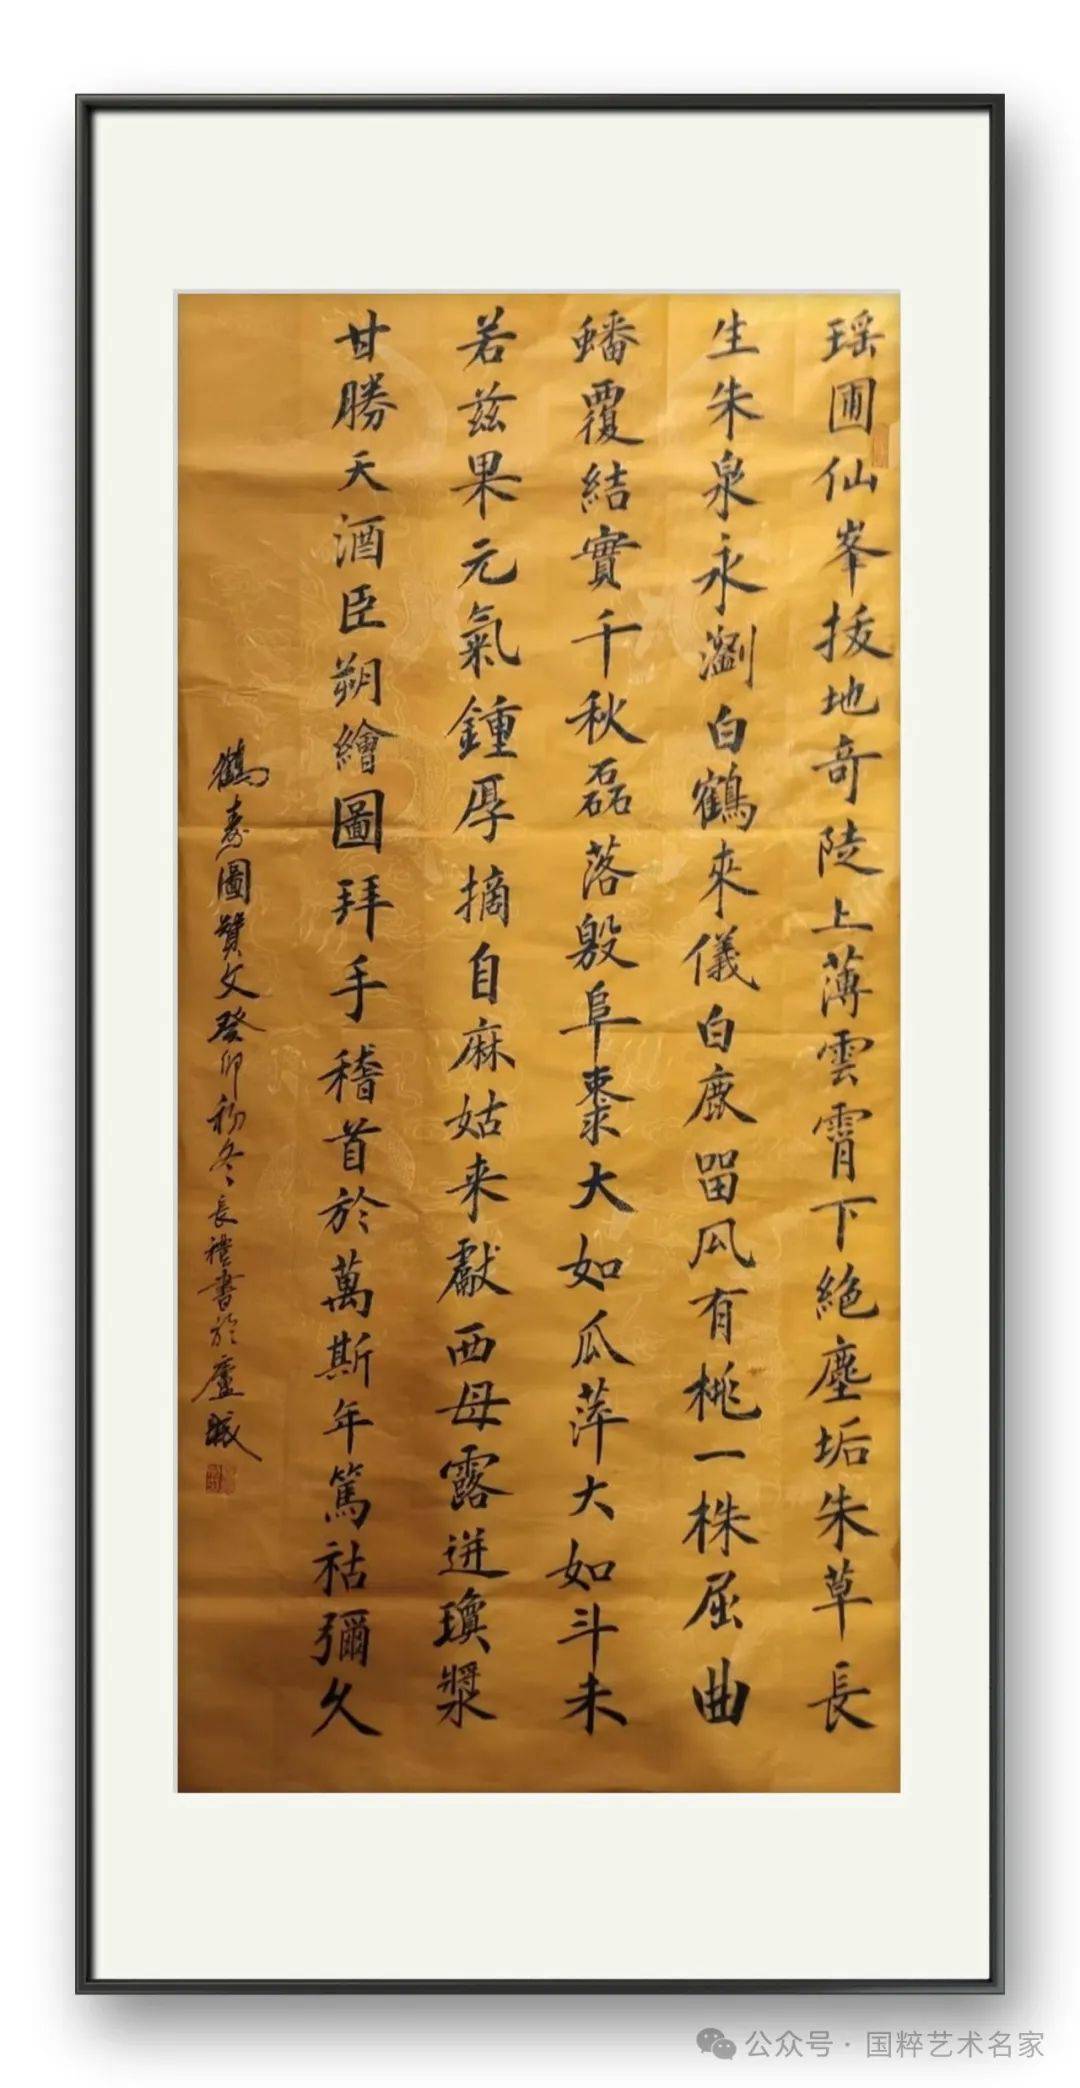 瑶圃仙峯拔地奇陡上薄雲霄下絶塵垢朱草長
生朱泉永瀏白鶴來儀白鹿畱风有桃一株屈曲
蟠覆結實千秋磊落殷阜棗大如瓜萍大如斗未
若兹果元氣鍾厚摘自麻姑来獻西母露迸瓊漿
甘勝天酒臣朔繪圖拜手稽首於萬斯年篤祜彌久
鶴壽圖贊文癸卯初冬長禮書於廬城
公众号·国粹艺术名家